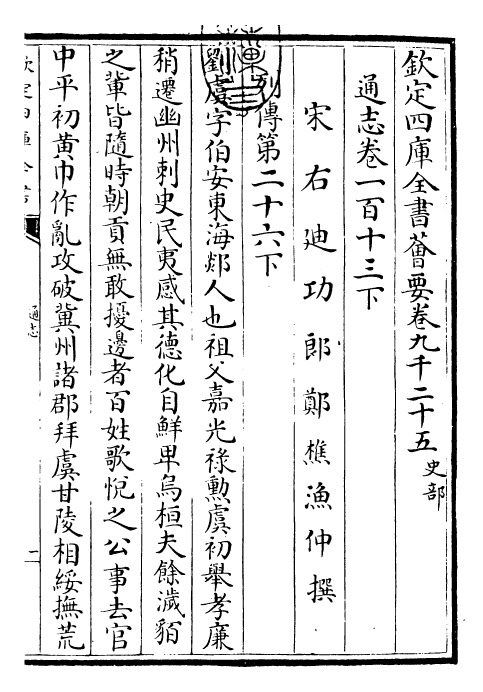 欽定四庫全書薈要卷九千二十五史部
通志卷一百十三下
宋右迪功郎鄭樵漁仲撰
列傳第二十六下
劉虞字伯安東海郯人也祖父嘉光祿勲虞初舉孝廉
稍遷幽州刺史民夷感其德化自鮮卑烏桓夫餘濊貊
之輩皆隨時朝貢無敢擾邊者百姓歌悅之公事去官
中平初黄巾作亂攻破冀州諸郡拜虞甘陵相綏撫荒
通志